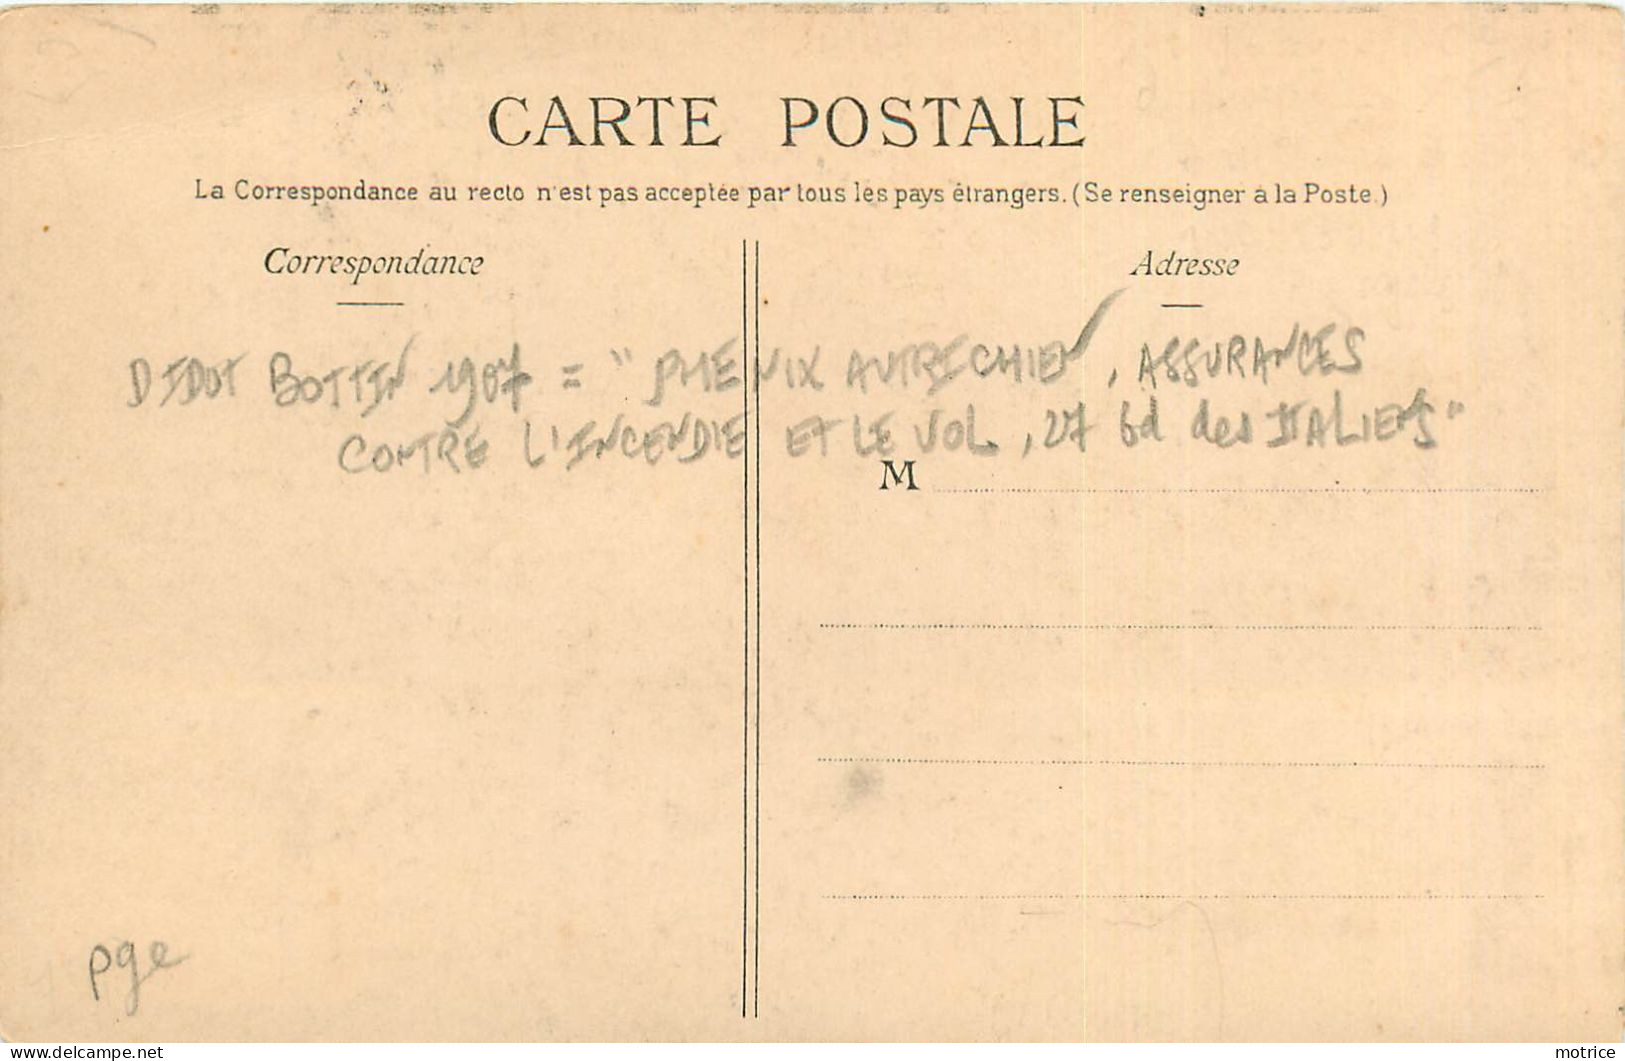 CARTE POSTALE
La Correspondance au recto n'est pas acceptée par tous les pays étrangers. (Se renseigner à la Poste.)
Correspondance
Adresse
DIDOT BOTTIN 1907 = "PHENIX AUTRICHIEN, ASSURANCES
CONTRE L'INCENDIE ET LE VOL, 27 bd des ITALIENS"
M
pge
motrice